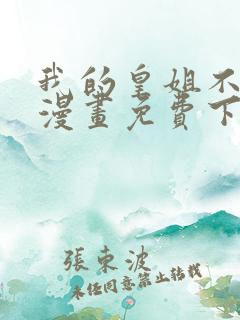 我的皇姐不
漫畫免費下
張東波
未经同意禁止转载